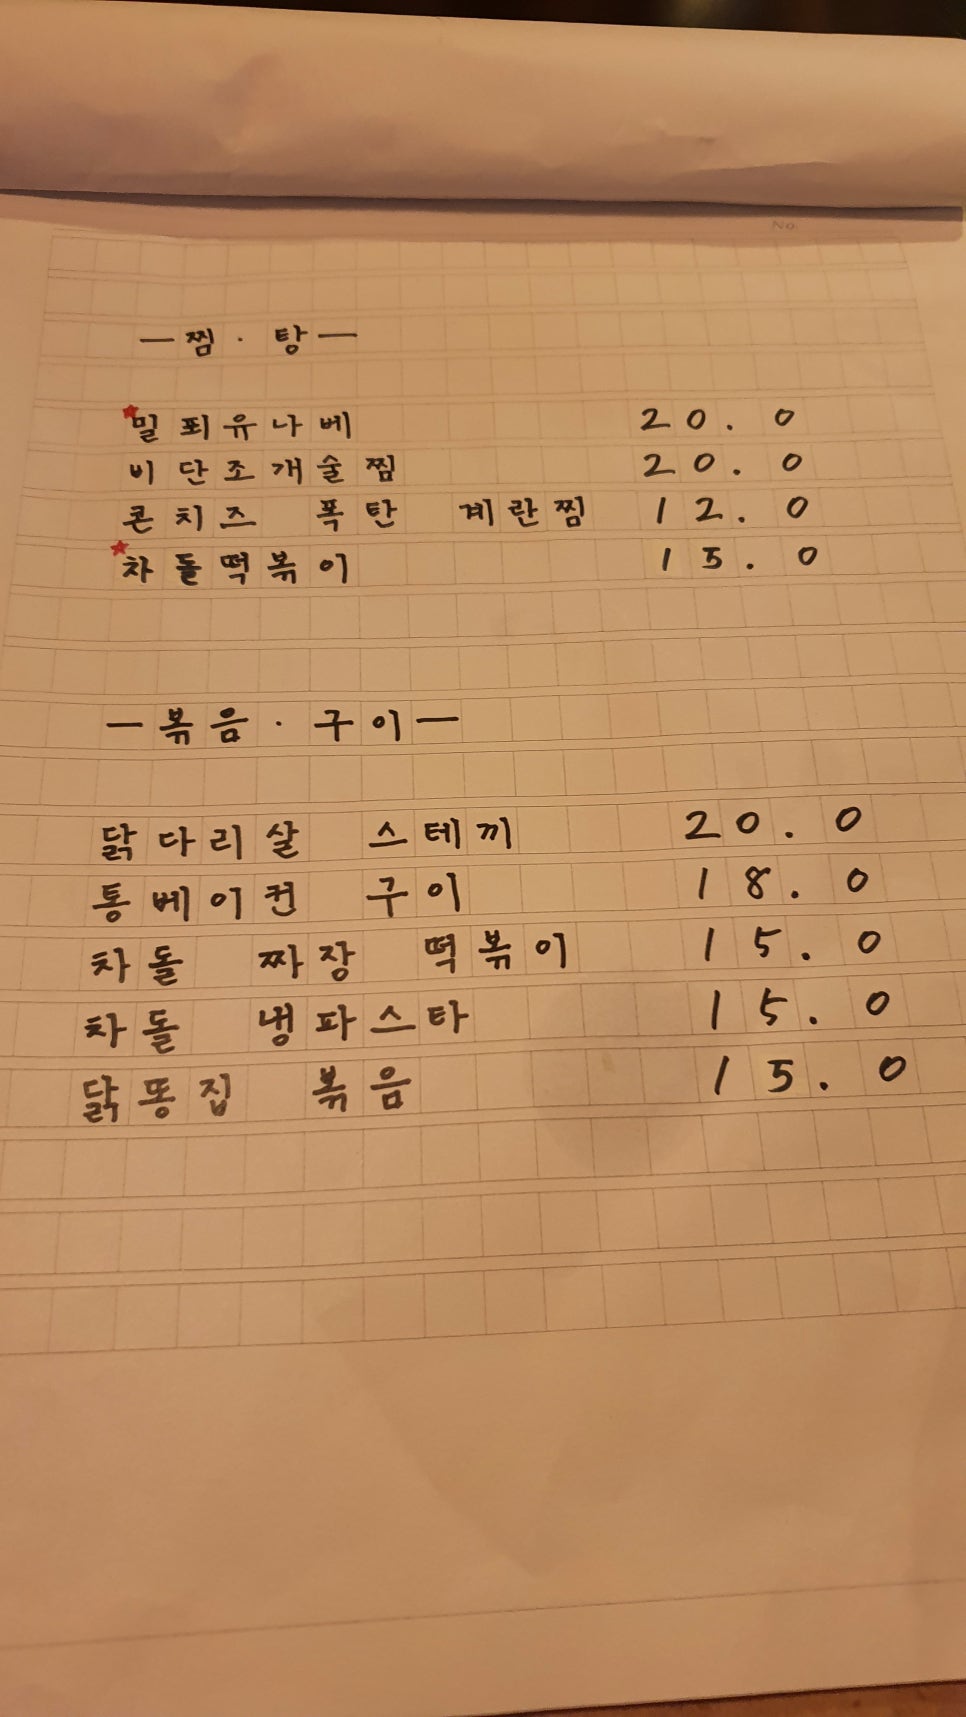 No.
—찜 · 탕—
★밀푀유나베 20.0
비단조개술찜 20.0
콘치즈 폭탄 계란찜 12.0
★차돌떡볶이 15.0
—볶음 · 구이—
닭다리살 스테끼 20.0
통베이컨 구이 18.0
차돌 짜장 떡볶이 15.0
차돌 냉파스타 15.0
닭똥집 볶음 15.0